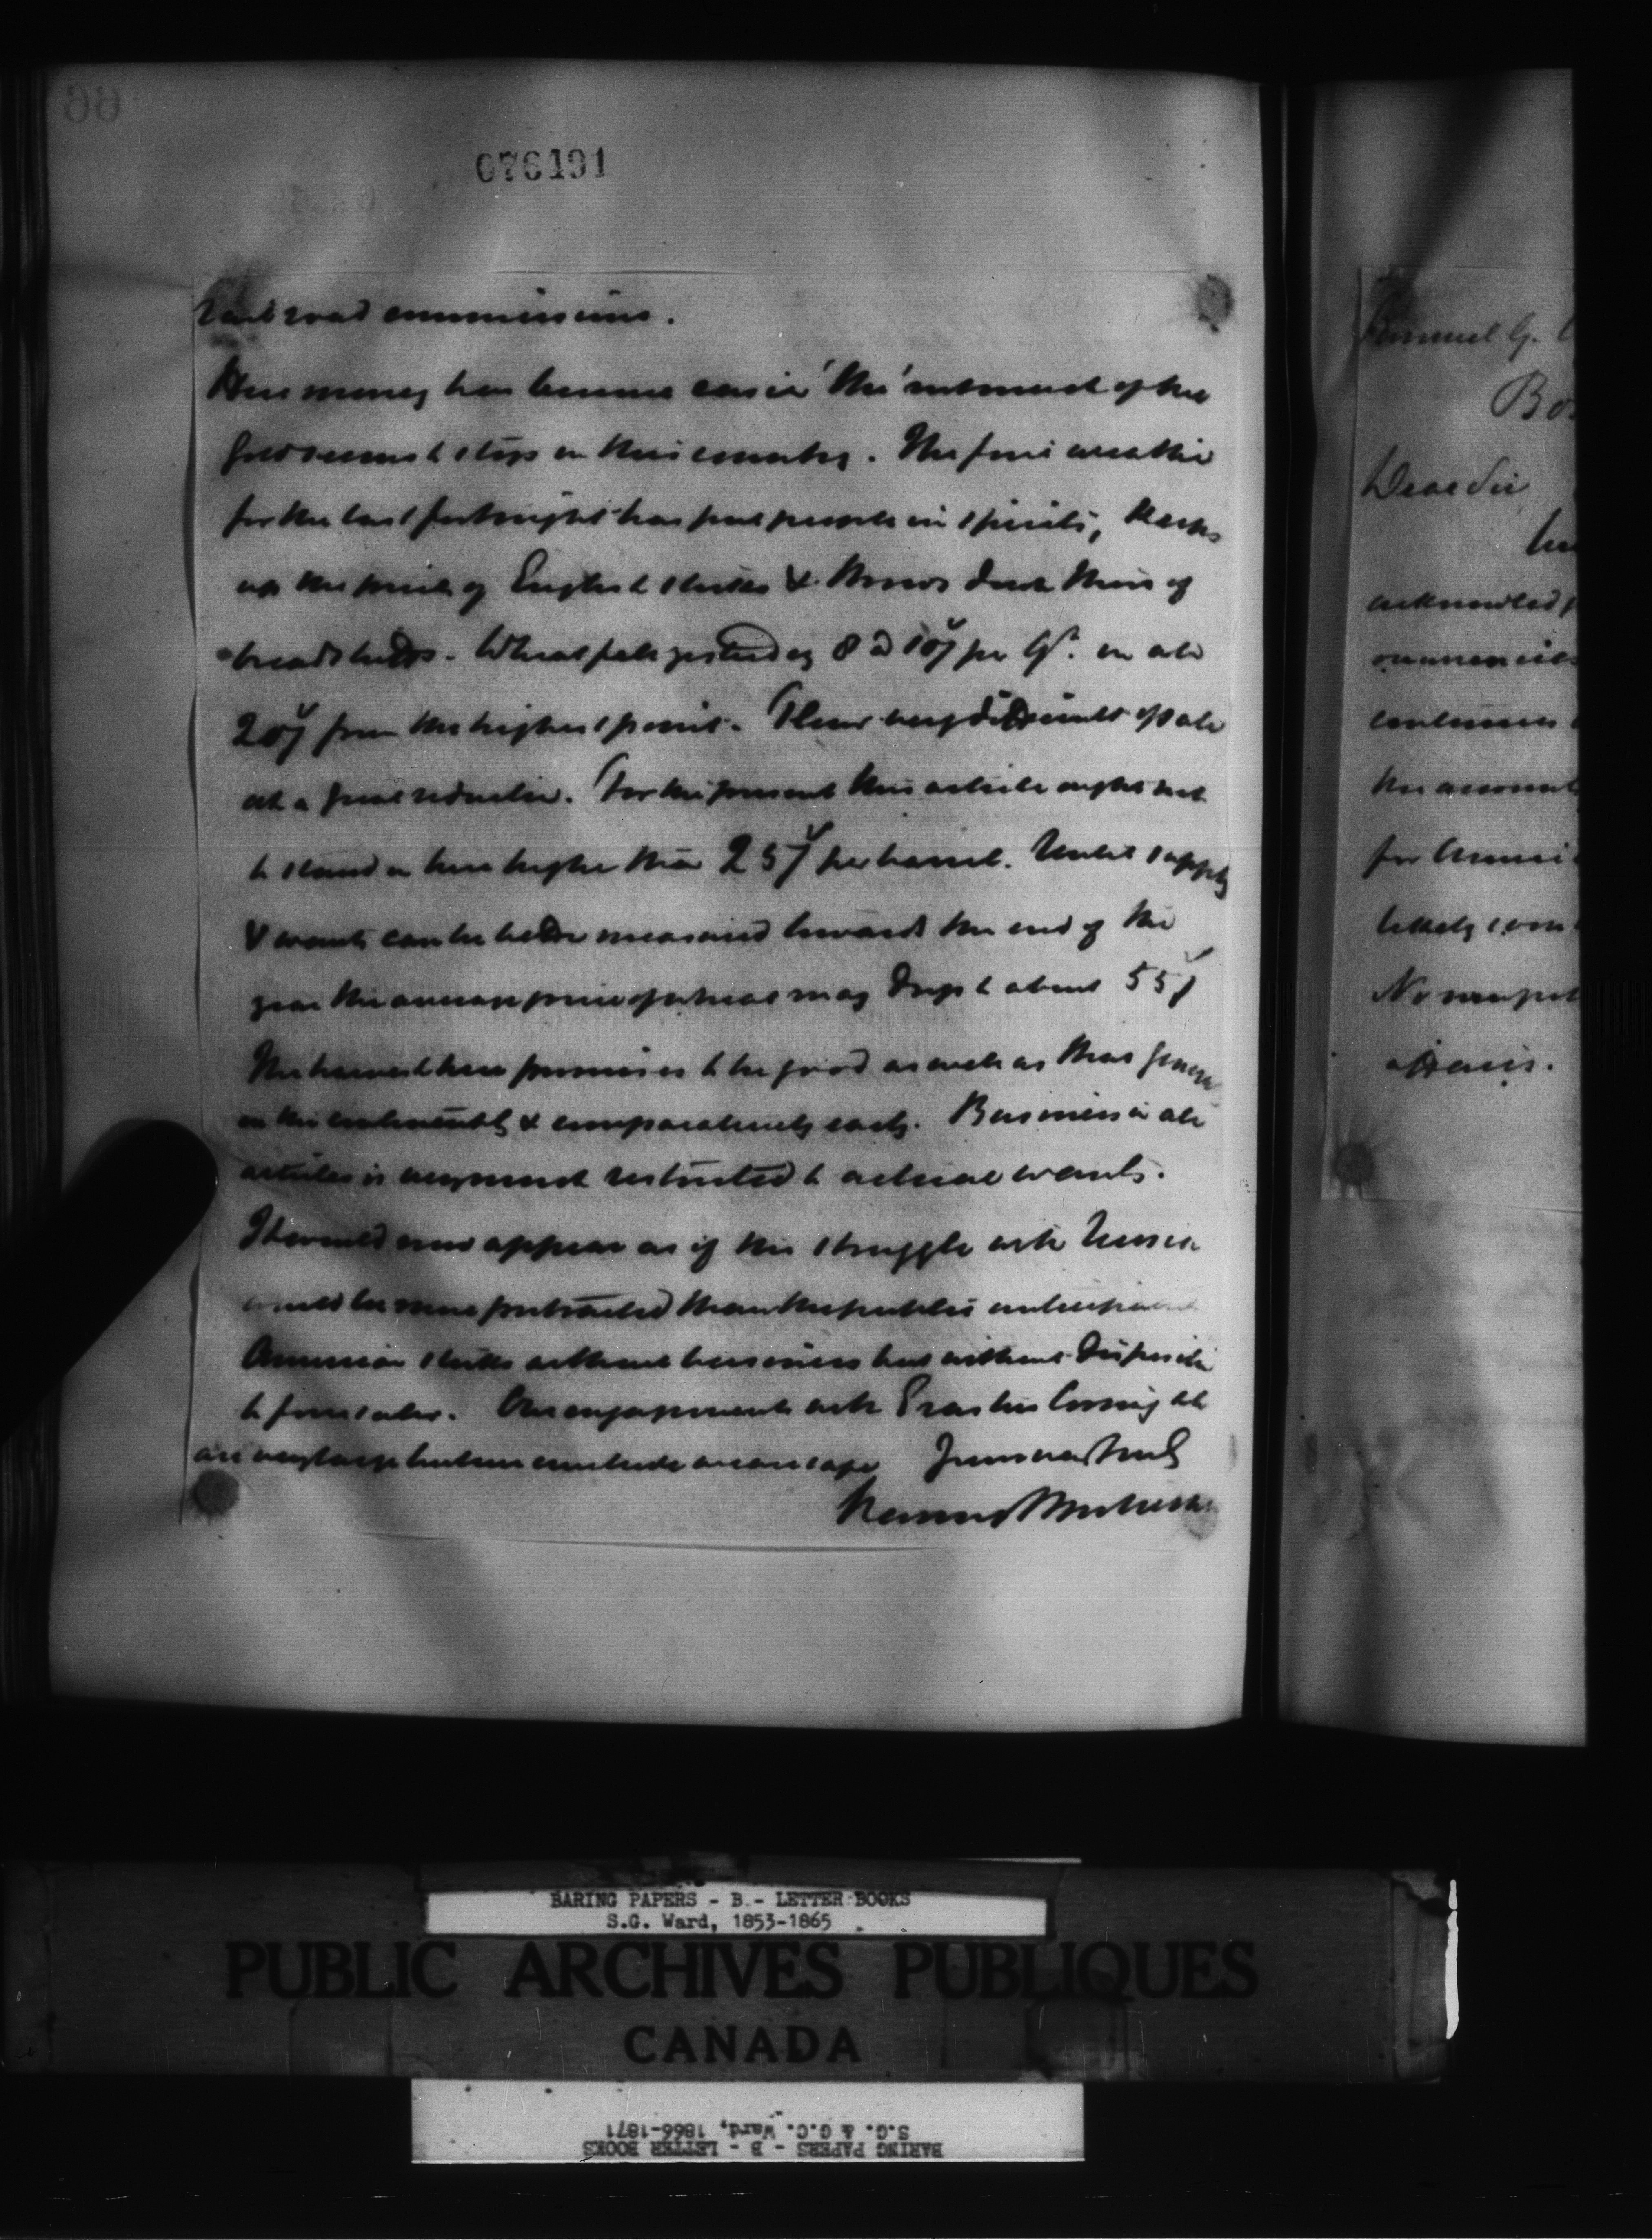 66
076491
Rail road commissions.
Here money has become easier the outward of the
gold seems to stop in this country. The fine weather
for the last fortnight has put people in spirits, keeps
up the price of English stocks & throws down those of
breadstuffs. Wheat fell yesterday 8 @ 10/ per Qr. in all
20/ from the highest point. Flour very difficult of sale
at a great reduction. For the present this article ought not
to stand in here higher than 25/ per barrel. Until supply
& wants can be better measured towards the end of the
year the average price of wheat may drop to about 55/
The harvest here promises to be good as well as that general
on the continent & comparatively early. Business in all
articles is very much restricted to actual wants.
It would now appear as if the struggle with Russia
would be more protracted than the public anticipated
American stocks without business but without disposition
to force sales. Our engagements with Erastus Corning
are very large but we conclude are safe Yours very truly
Samuel G.
Bos
Dear Sir
acknowledg
continues
the account
for
No
affairs.
BARING PAPERS - B - LETTER BOOKS
S.G. Ward, 1853-1865
PUBLIC ARCHIVES PUBLIQUES
CANADA
BARING PAPERS - B - LETTER BOOKS
S.G. & G.C. Ward, 1866-1871